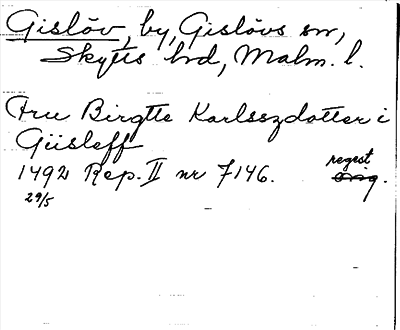 Gislöv, by, Gislövs sn,
Skytts hd, Malm. l.
Fru Birgtte Karlsszdotter i
Giisleff
1492 Rep. II nr 7146. regest
29/5 orig.